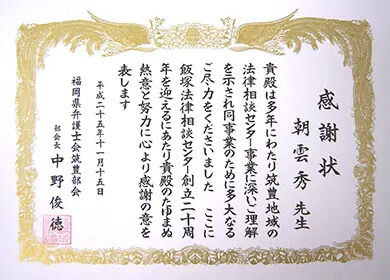 感謝状
朝雲秀 先生
貴殿は多年にわたり筑豊地域の
法律相談センター事業に深いご理解
を示され同事業のために多大なる
ご尽力をくださいました ここに
飯塚法律相談センター創立二十周
年を迎えるにあたり貴殿のたゆまぬ
熱意と努力に心より感謝の意を
表します
平成二十五年十一月十五日
福岡県弁護士会筑豊部会
部会長 中野俊徳